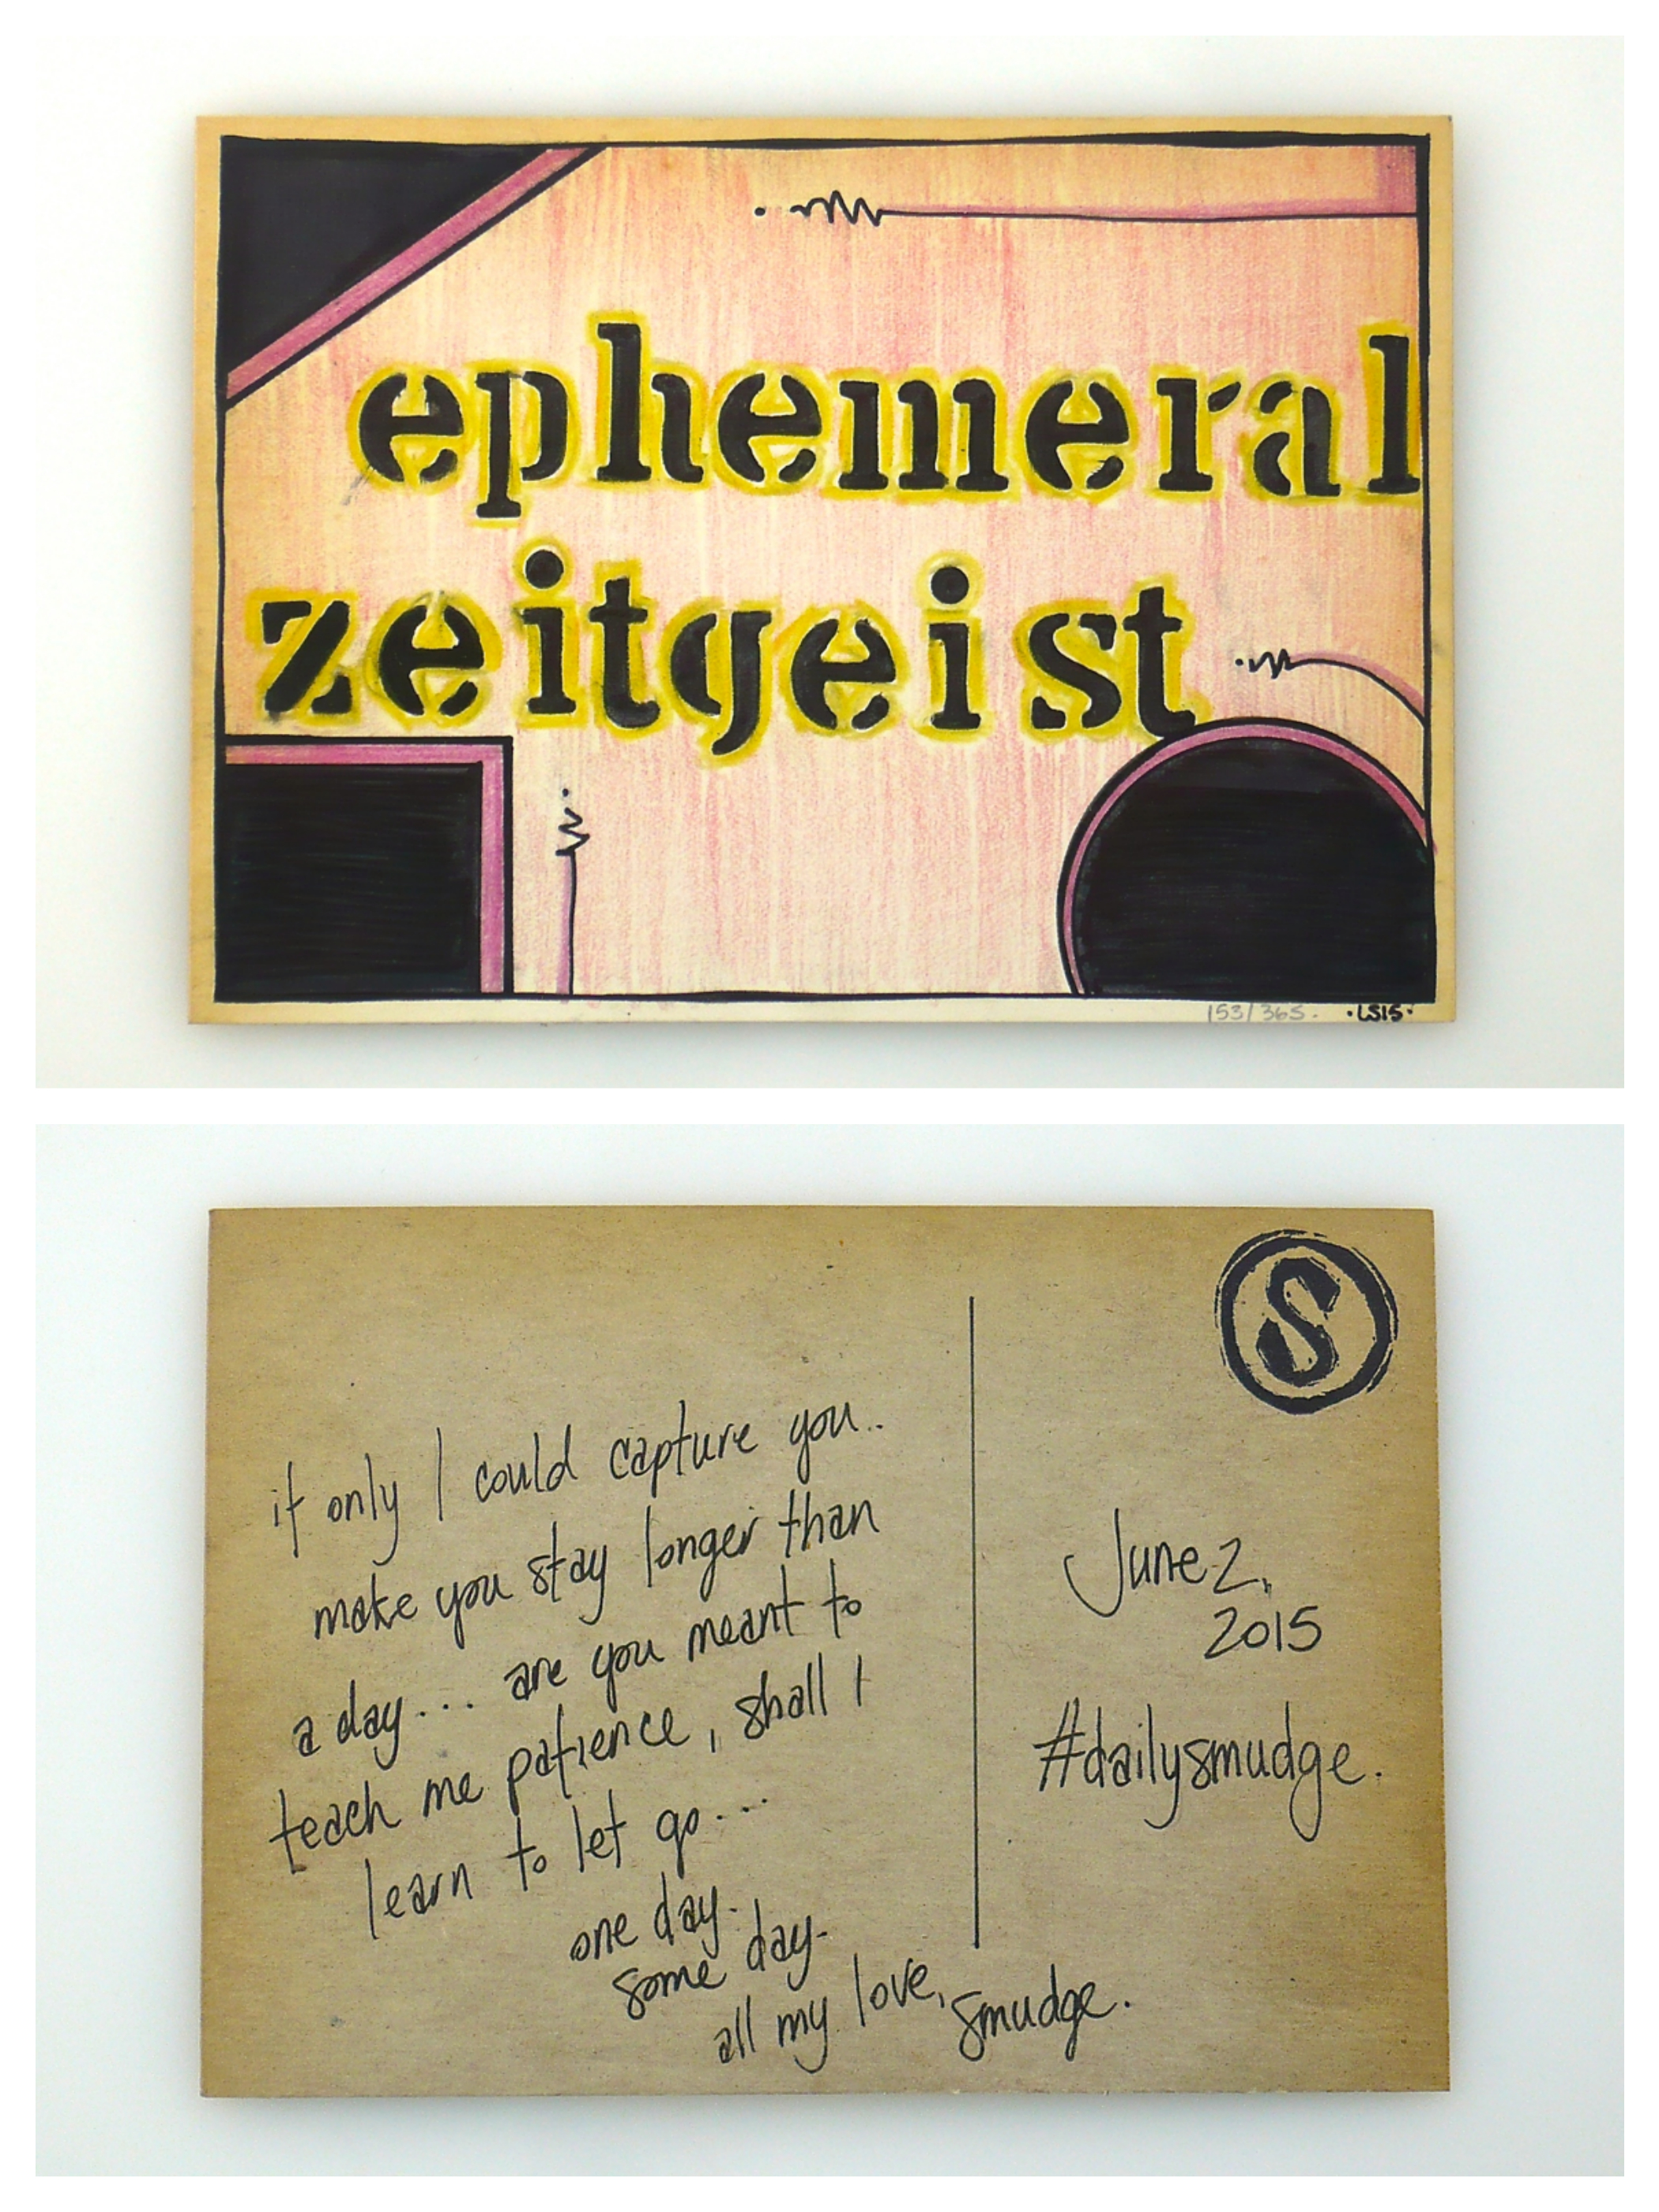 ephemeral
zeitgeist
153/365. ·LS15·
S
if only I could capture you..
make you stay longer than
a day... are you meant to
teach me patience, shall I
learn to let go...
one day.
some day.
all my love, smudge.
June 2,
2015
#dailysmudge.